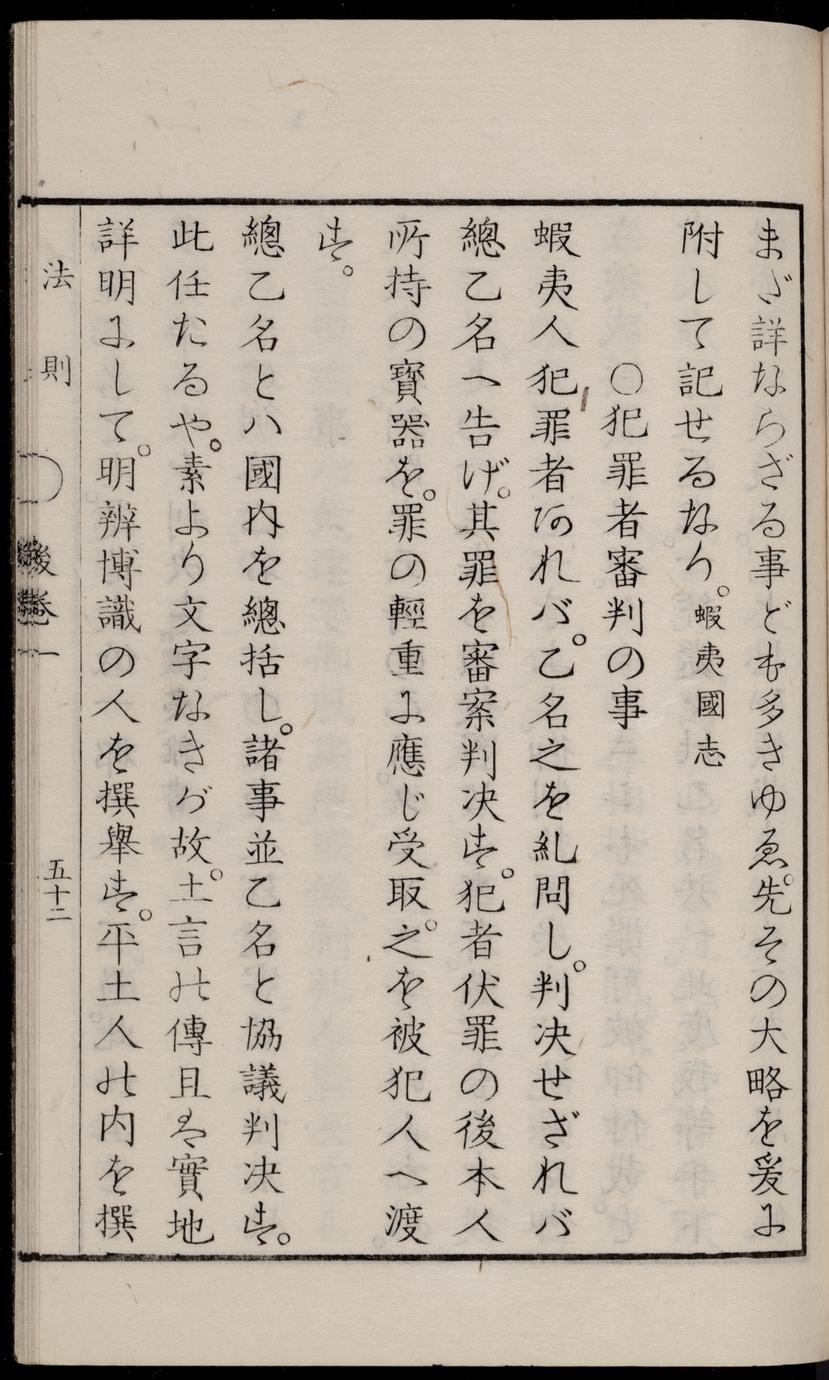 まだ詳ならざる事ども多きゆゑ。先その大略を爰に
附して記せるなり。蝦夷國志
○犯罪者審判の事
蝦夷人犯罪者あれバ。乙名之を糺問し。判决せざれバ
總乙名へ告げ。其罪を審案判决す。犯者伏罪の後本人
所持の寶器を。罪の輕重に應じ受取。之を被犯人へ渡
す。
總乙名とハ國内を總括し。諸事並乙名と協議判决す。
此任たるや。素より文字なきが故。土言の傳且は實地
詳明にして。明辨博識の人を撰擧す。平土人の内を撰
法則
後卷一
五十二